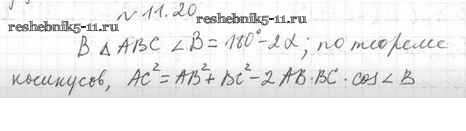 № 11.20
reshebnik5-11.ru
reshebnik5-11.ru
В △ ABC ∠B = 180° - 2α; по теореме
косинусов, AC² = AB² + BC² - 2 AB·BC · cos∠B